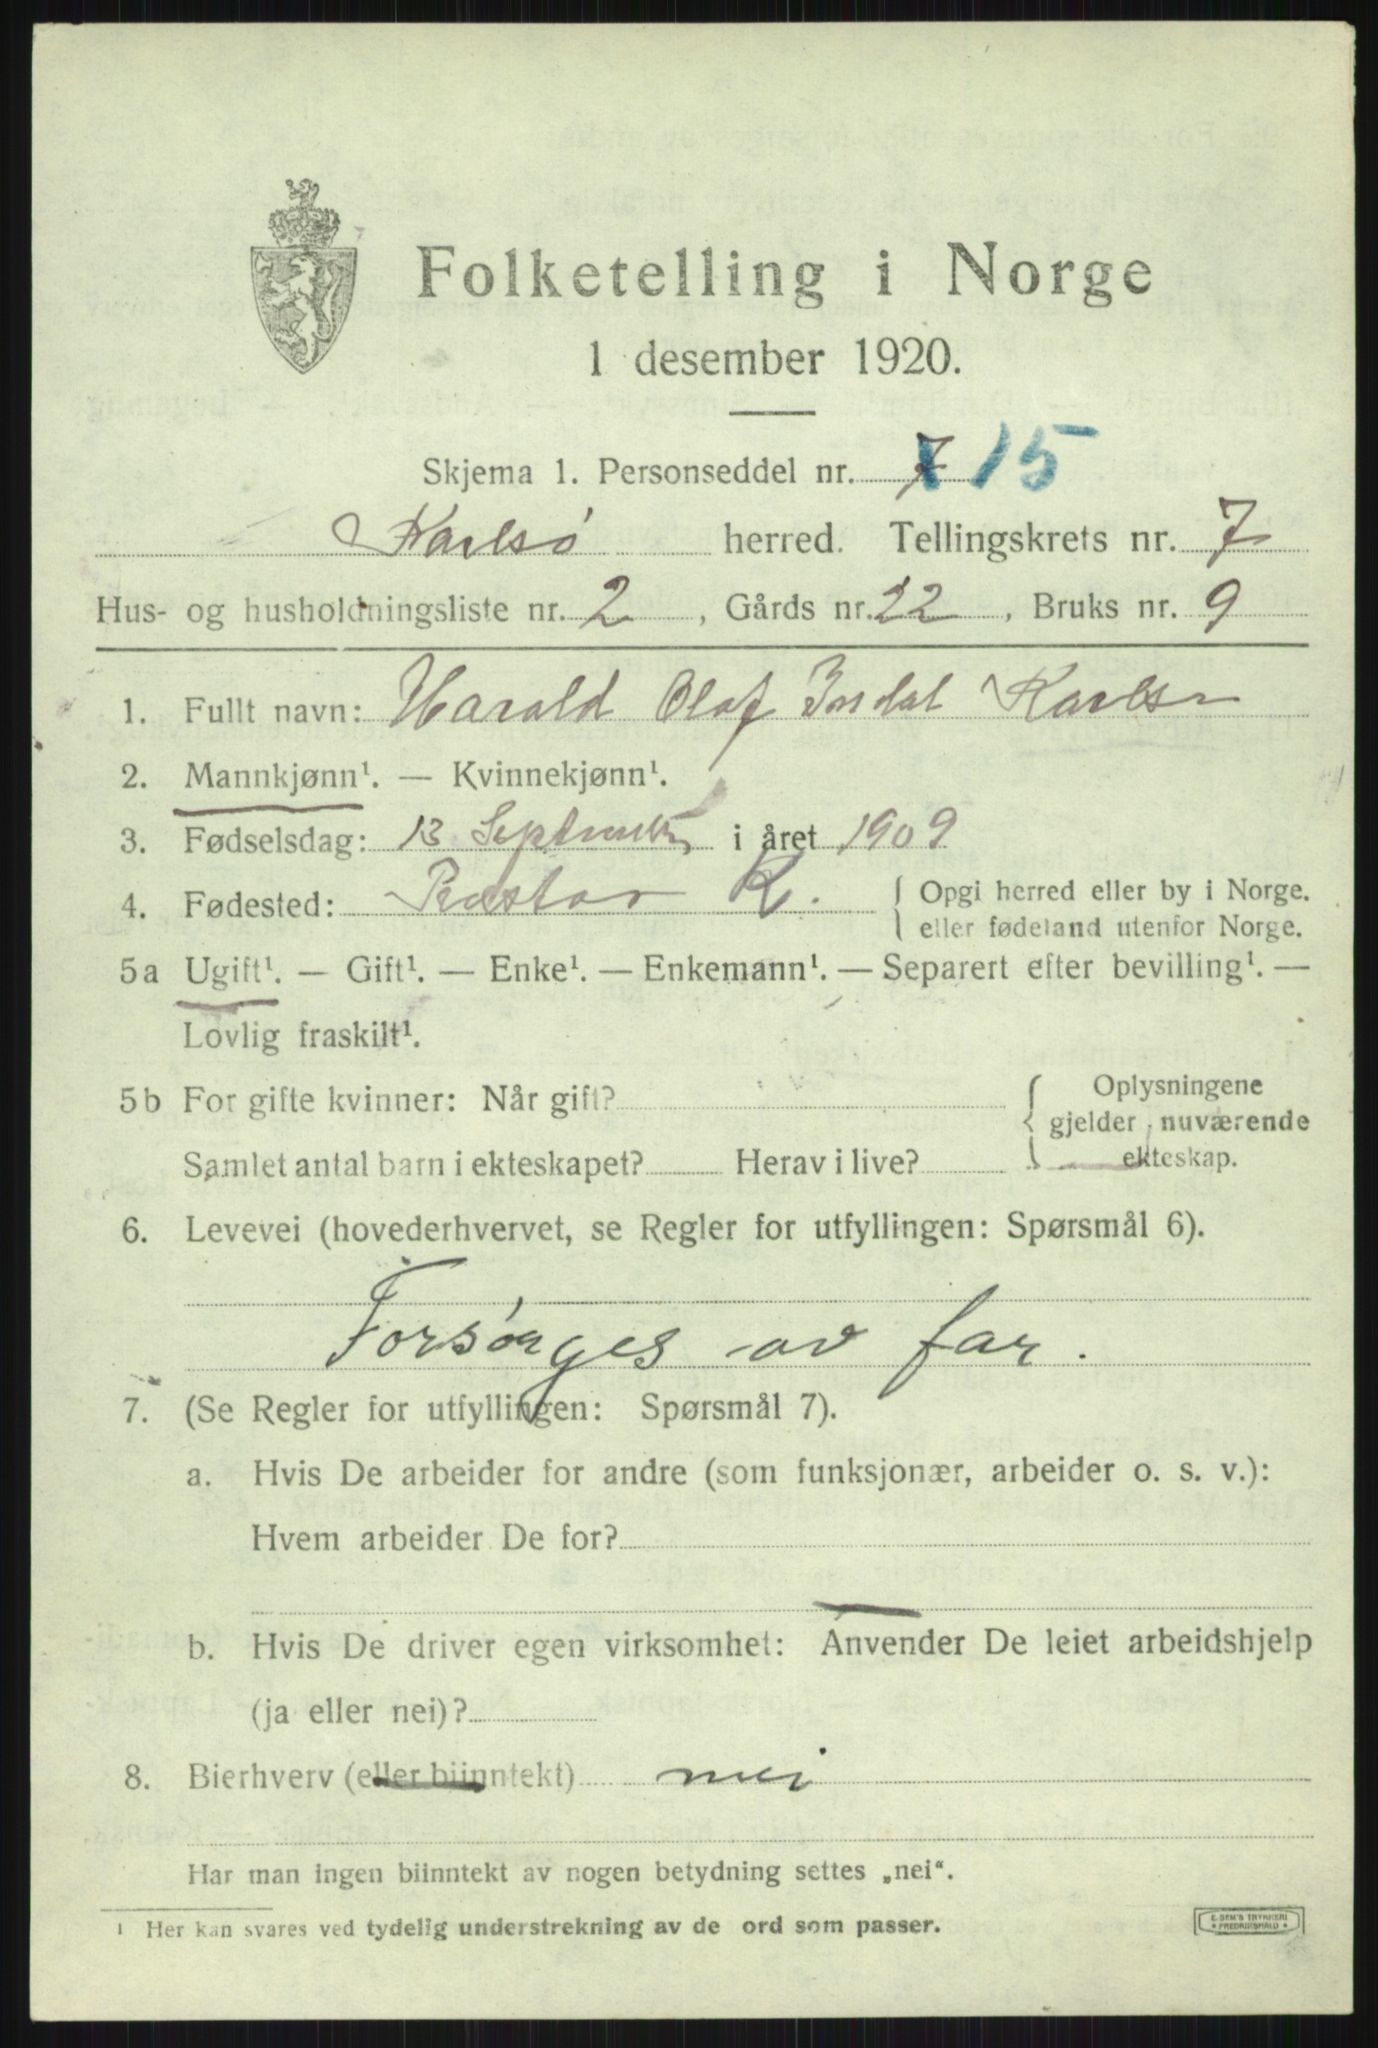 Folketelling i Norge
1 desember 1920.
Skjema 1. Personseddel nr. 7 15
Karlsø herred. Tellingskrets nr. 7
Hus- og husholdningsliste nr. 2, Gårds nr. 22, Bruks nr. 9
1. Fullt navn: Harald Olaf Indal Karlsn
2. Mannkjønn¹. — Kvinnekjønn¹.
3. Fødselsdag: 13 September i året 1909
4. Fødested: K. { Opgi herred eller by i Norge.
eller fødeland utenfor Norge.
5a Ugift¹. — Gift¹. — Enke¹. — Enkemann¹. — Separert efter bevilling¹. —
Lovlig fraskilt¹.
5b For gifte kvinner: Når gift? { Oplysningene
gjelder nuværende
Samlet antal barn i ekteskapet? Herav i live? ekteskap.
6. Levevei (hovederhvervet, se Regler for utfyllingen: Spørsmål 6).
Forsørges av far.
7. (Se Regler for utfyllingen: Spørsmål 7).
a. Hvis De arbeider for andre (som funksjonær, arbeider o. s. v.):
Hvem arbeider De for?
b. Hvis De driver egen virksomhet: Anvender De leiet arbeidshjelp
(ja eller nei)?
8. Bierhverv (eller biinntekt) nei
Har man ingen biinntekt av nogen betydning settes „nei“.
¹ Her kan svares ved tydelig understrekning av de ord som passer.
E. SEM'S TRYKKERI
* FREDRIKSHALD *